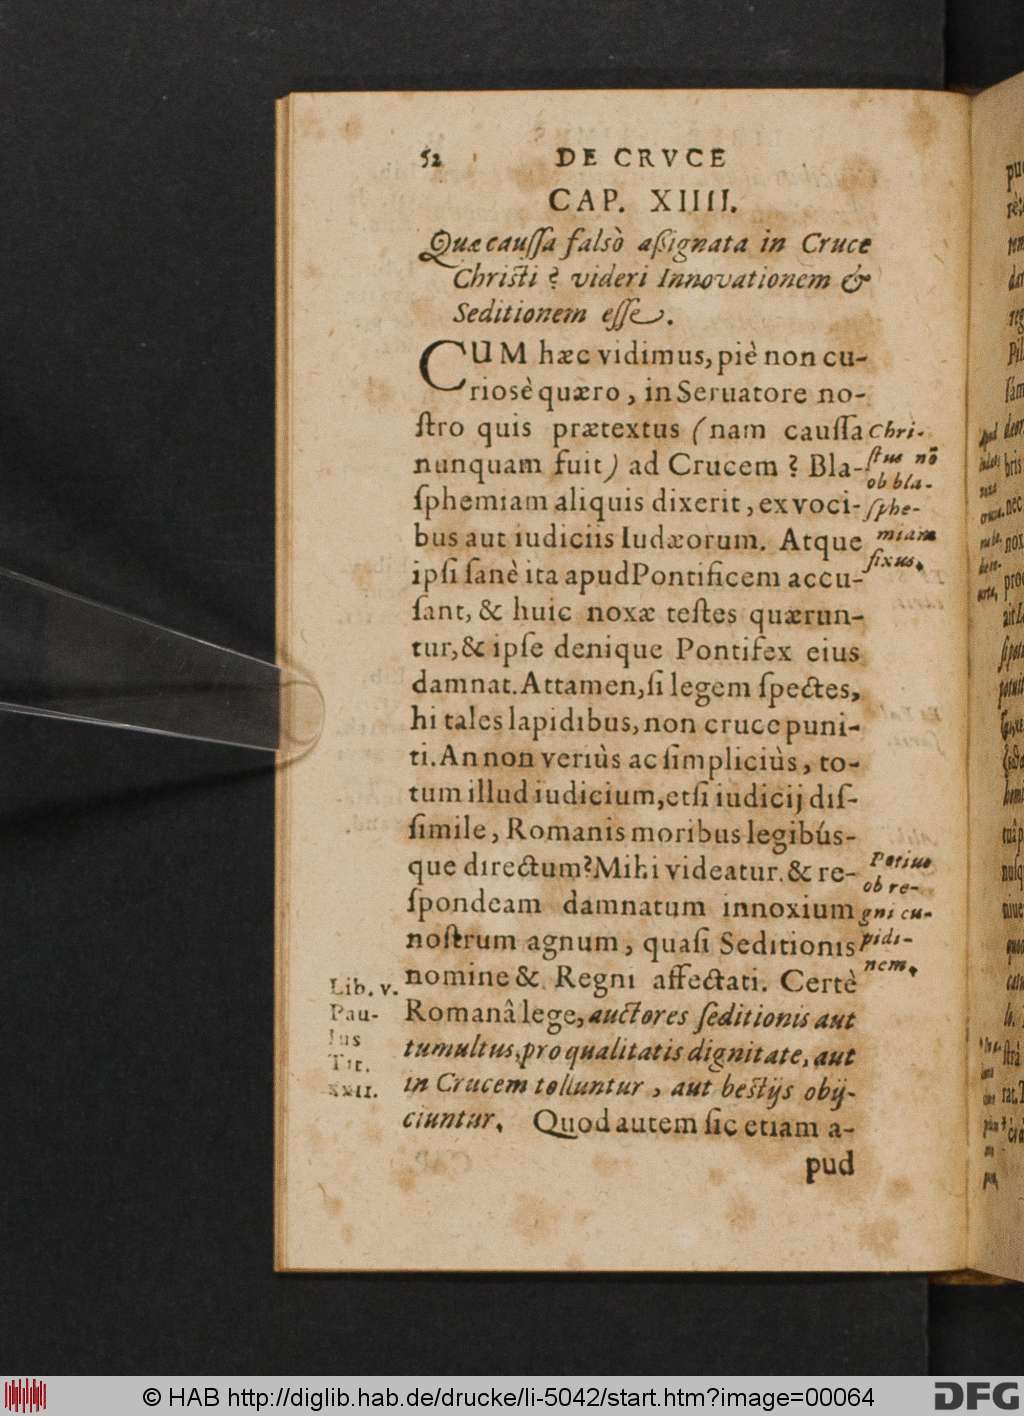 52 DE CRVCE
CAP. XIIII.
Quæ caussa falsò aßignata in Cruce
Christi? videri Innovationem &
Seditionem esse.
CUM hæc vidimus, piè non cu-
riosè quæro, in Seruatore no-
stro quis prætextus (nam caussa
nunquam fuit) ad Crucem? Bla-
sphemiam aliquis dixerit, ex voci-
bus aut iudiciis Iudæorum. Atque
ipsi sanè ita apud Pontificem accu-
sant, & huic noxæ testes quærun-
tur, & ipse denique Pontifex eius
damnat. Attamen, si legem spectes,
hi tales lapidibus, non cruce puni-
ti. An non veriùs ac simpliciùs, to-
tum illud iudicium, etsi iudicij dis-
simile, Romanis moribus legibús-
que directum? Mihi videatur. & re-
spondeam damnatum innoxium
nostrum agnum, quasi Seditionis
nomine & Regni affectati. Certè
Romanâ lege, auctores seditionis aut
tumultus, pro qualitatis dignitate, aut
in Crucem tolluntur, aut bestijs obij-
ciuntur. Quod autem sic etiam a-
pud
Chri-
stus nō
ob bla-
sphe-
miam
fixus.
Potius
ob re-
gni cu-
pidi-
nem.
Lib. v.
Pau-
lus
Tit.
XXII.
© HAB http://diglib.hab.de/drucke/li-5042/start.htm?image=00064
DFG